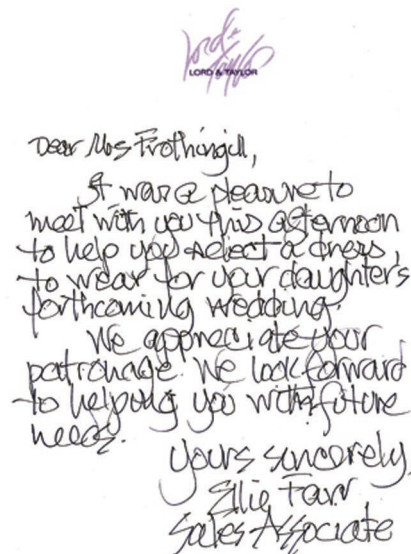 Lord & Taylor
LORD & TAYLOR
Dear Mrs Frothingill,
It was a pleasure to
meet with you this afternoon
to help you select a dress,
to wear for your daughter's
forthcoming wedding.
We appreciate your
patronage. We look forward
to helping you with future
needs.
Yours sincerely,
Ellie Farr
Sales Associate